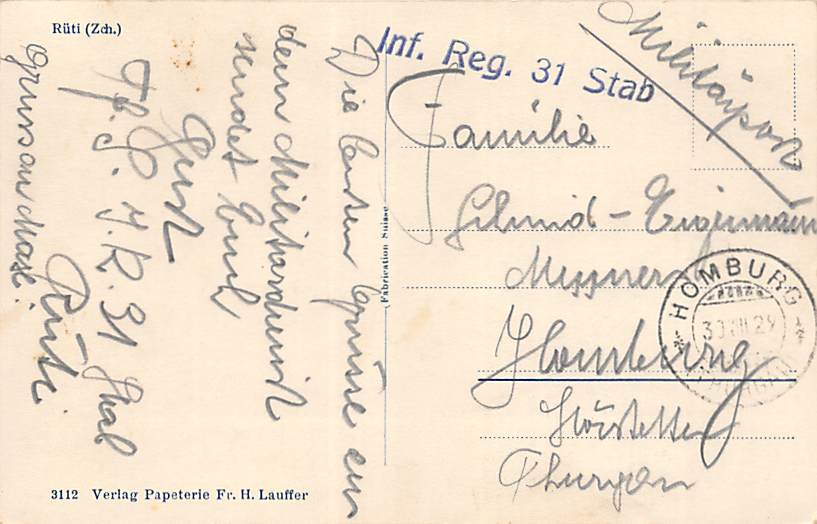 Rüti (Zch.)
Die besten Grüsse aus
dem Militärdienst
sendet Euch
Tf. S. J. R. 31 Stab
Rüti.
Gruss an
3112 Verlag Papeterie Fr. H. Lauffer
Fabrication Suisse
Inf. Reg. 31 Stab
Militärpost
Familie
Schmid - Eigenmann
Messmer
Homburg
Hörstetten
Thurgau
HOMBURG
29
(THURGAU)